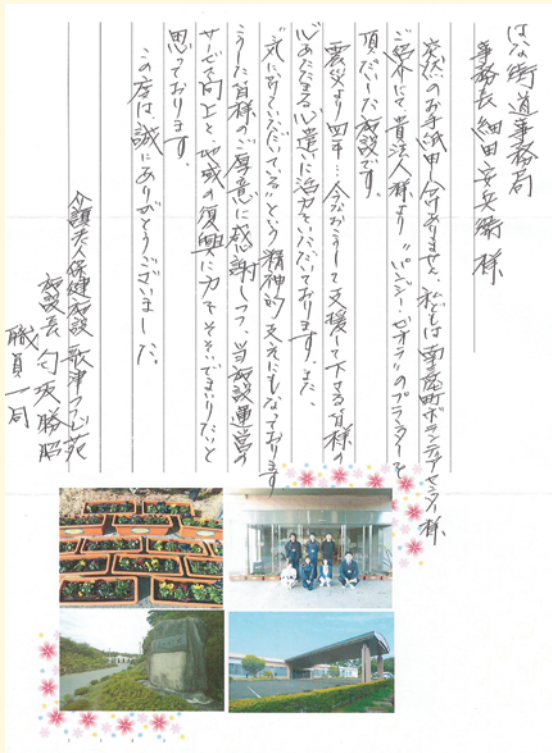 はな街道事務局
事務長 細田安兵衛 様
突然のお手紙申し分けありません。私どもは南三陸町ボランティアセンター様
ご紹介にて、貴法人様より〝パンジー・ビオラ〟のプランターを
頂だいした施設です。
震災より四年…今なおこうして支援して下さる皆様の
心あたたまる心遣いに活力をいただいております。また、
〝気にかけていただいている〟という精神的支えにもなっております
こうした皆様のご厚意に感謝しつつ、当施設運営の
サービス向上と地域の復興に力をそそいでまいりたいと
思っております。
この度は、誠にありがとうございました。
介護老人保健施設 歌津つつじ苑
施設長 匂坂勝昭
職員一同